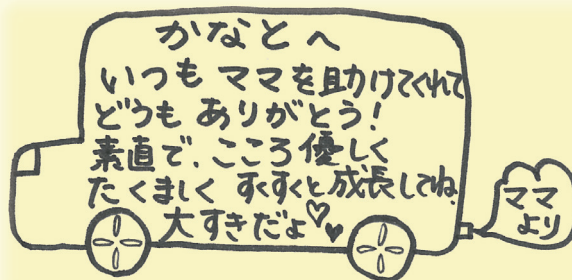 かなとへ
いつも ママを助けてくれて
どうも ありがとう!
素直で、こころ優しく
たくましく すくすくと成長してね。
大すきだょ
ママ
より